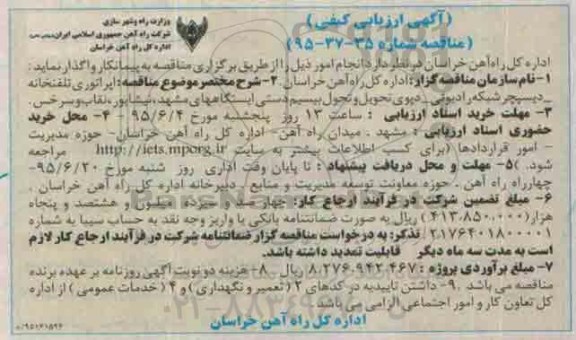 وزارت راه و شهر سازی
شرکت راه آهن جمهوری اسلامی ایران
اداره کل راه آهن خراسان
(آگهی ارزیابی کیفی)
(مناقصه شماره ۳۵-۳۷-۹۵)
اداره کل راه‌آهن خراسان در نظر دارد انجام امور ذیل را از طریق برگزاری مناقصه به پیمانکار واگذار نماید:
۱-نام سازمان مناقصه گزار: اداره کل راه‌آهن خراسان. ۲- شرح مختصر موضوع مناقصه: اپراتوری تلفنخانه
_دیسپچر شبکه رادیوئی _ دپوی تحویل و تحول بیسیم دستی ایستگاههای مشهد، نیشابور، نقاب و سرخس.
۳- مهلت خرید اسناد ارزیابی : ساعت ۱۳ روز پنجشنبه مورخ ۹۵/۶/۴ - ۴- محل خرید
حضوری اسناد ارزیابی : مشهد . میدان راه آهن- اداره کل راه آهن خراسان- حوزه مدیریت
- امور قراردادها (برای کسب اطلاعات بیشتر به سایت http://iets.mporg.ir مراجعه
شود. )۵- مهلت و محل دریافت پیشنهاد : تا پایان وقت اداری روز شنبه مورخ ۹۵/۶/۲۰-
چهارراه راه آهن . حوزه معاونت توسعه مدیریت و منابع . دبیرخانه اداره کل راه آهن خراسان .
۶- مبلغ تضمین شرکت در فرآیند ارجاع کار: چهارصد و سیزده میلیون و هشتصد و پنجاه
هزار(۴۱۳.۸۵۰.۰۰۰) ریال به صورت ضمانتنامه بانکی یا واریز وجه نقد به حساب سیبا به شماره
۲۱۷۶۴۰۱۸۰۰۰۰۱ تذکر: به درخواست مناقصه گزار ضمانتنامه شرکت در فرآیند ارجاع کار لازم
است به مدت سه ماه دیگر قابلیت تمدید داشته باشد.
۷- مبلغ برآوردی پروژه : ۸.۲۷۶.۹۴۲.۴۶۷ ریال ۸- هزینه دو نوبت آگهی روزنامه بر عهده برنده
مناقصه می باشد .۹- داشتن تاییدیه در کدهای ۲ (تعمیر و نگهداری) و ۴ ( خدمات عمومی ) از اداره
کل تعاون کار و امور اجتماعی الزامی می باشد
اداره کل راه آهن خراسان